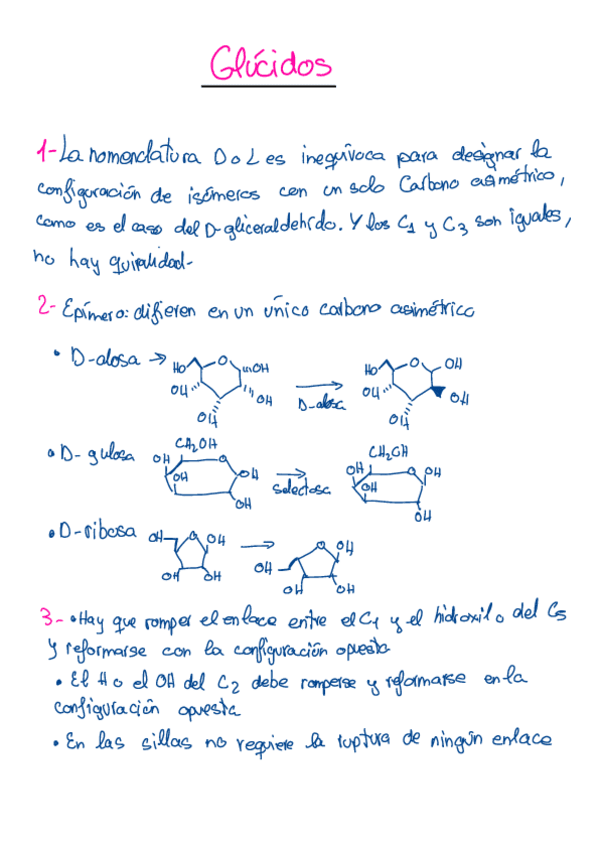 Glúcidos
1- La nomenclatura D o L es inequívoca para designar la
configuración de isómeros con un solo Carbono asimétrico,
como es el caso del D-gliceraldehído. Y los C1 y C3 son iguales,
no hay quiralidad-
2- Epímero: difieren en un único carbono asimétrico
• D-alosa → HO O OH OH OH OH
D-alosa
HO O OH OH OH OH
• D-gulosa CH2OH OH O OH OH OH
CH2OH OH O OH OH OH
• D-ribosa OH O OH OH OH
O OH OH OH OH
3- • Hay que romper el enlace entre el C1 y el hidroxilo del C5
y reformarse con la configuración opuesta
• El H o el OH del C2 debe romperse y reformarse en la
configuración opuesta
• En las sillas no requiere la ruptura de ningún enlace